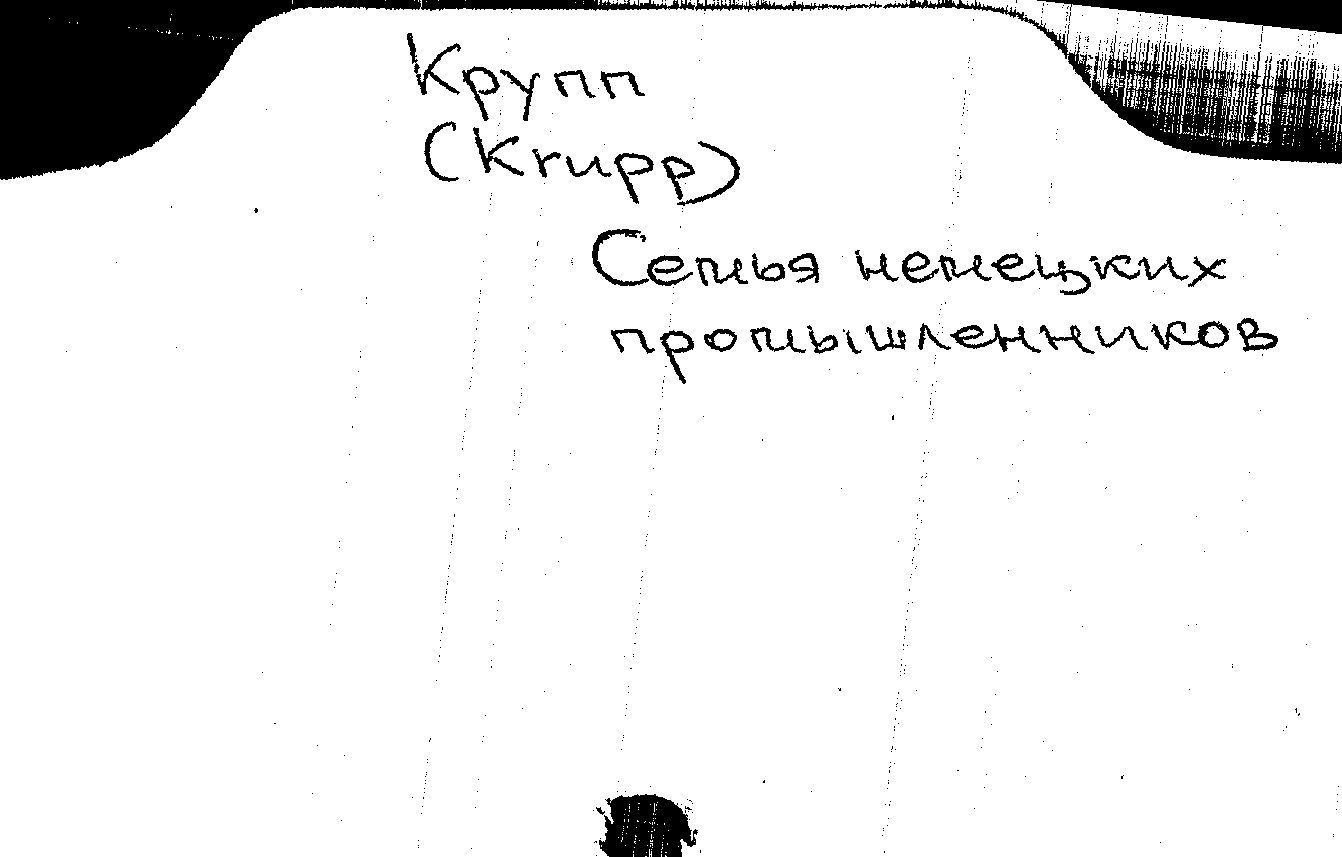 Крупп
(Krupp)
Семья немецких
промышленников